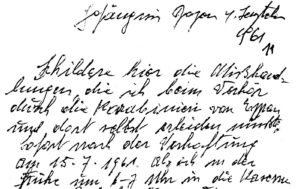 Gefängnis Bozen 4. September
1961
Schildere hier die Mißhand-
lungen, die ich beim Verhör
durch die Karabinieri von Eppan
und dort selbst erleiden mußte.
Sofort nach der Verhaftung
am 15.7.1961. als ich in der
Frühe um 6-7 Uhr in die Kaserne